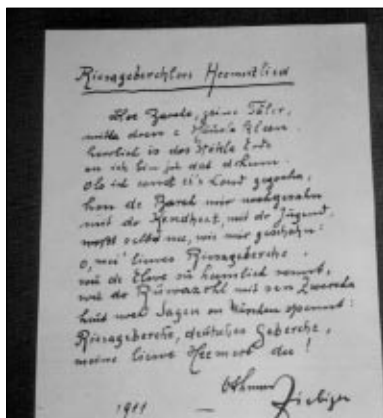 Riesageberchlersch Heemtlied
Hoe Barche, griene Täler,
mitta dren e Häus'la kleen.
herrlich is das Stëckla Erde
on ich bin ju dat dehem.
Ols ich eenst ei's Lond gezocha,
hon de Barch mir nochgesahn
mit dr Kendheet, mit dr Jugend,
selbst nee, wie mir geschahn:
O, mei' lieves Riesageberche,
wu de Elve su heemlich rennt,
wu dr Rüwazohl mit sen Zwercha
heut noch Sagen on Märchen spennt:
Riesageberche, deutsches Geberche,
meine lieve Heemert du!
Othmar
Fiebiger
1911 —